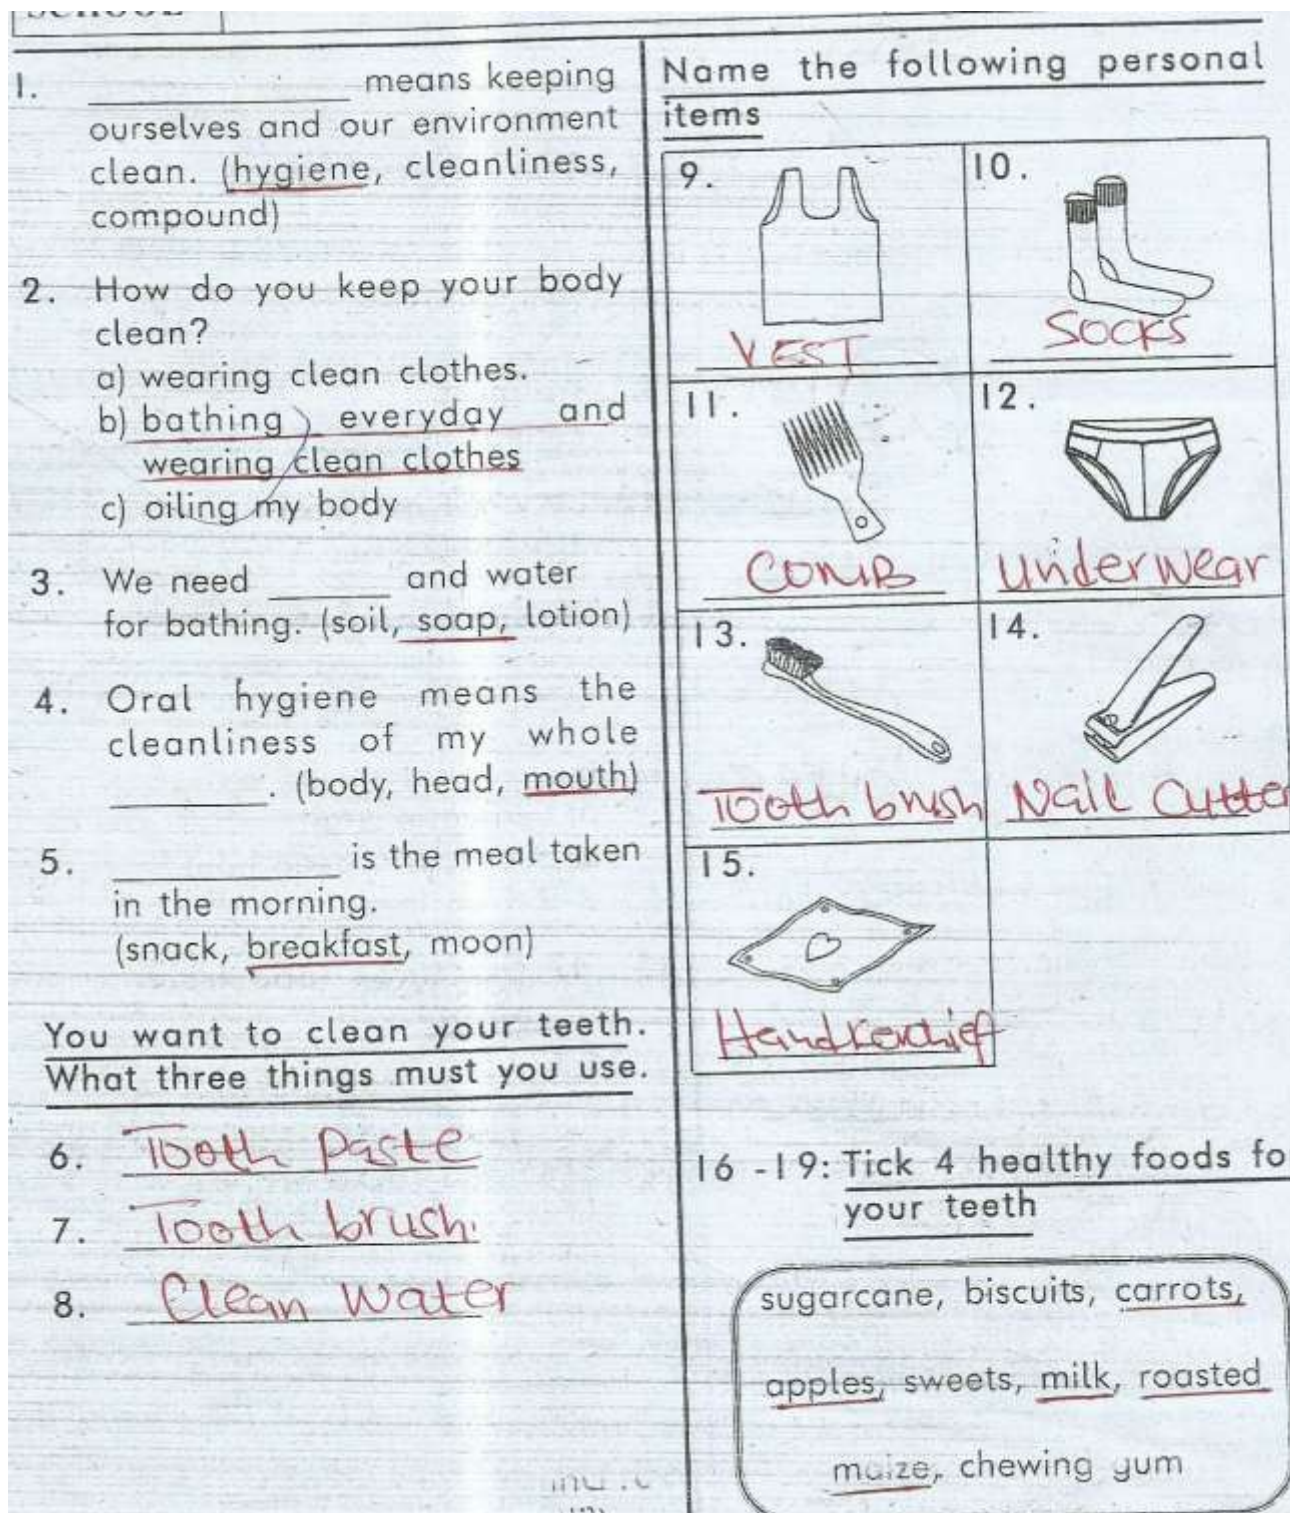 SCHOOL
1. ______ means keeping
ourselves and our environment
clean. (hygiene, cleanliness,
compound)
2. How do you keep your body
clean?
a) wearing clean clothes.
b) bathing everyday and
wearing clean clothes
c) oiling my body
3. We need ______ and water
for bathing. (soil, soap, lotion)
4. Oral hygiene means the
cleanliness of my whole
______. (body, head, mouth)
5. ______ is the meal taken
in the morning.
(snack, breakfast, moon)
You want to clean your teeth.
What three things must you use.
6. Tooth paste
7. Tooth brush.
8. Clean water
Name the following personal
items
9.
VEST
10.
SOCKS
11.
COMB
12.
Underwear
13.
Tooth brush
14.
Nail Cutter
15.
Handkerchief
16 -19: Tick 4 healthy foods fo
your teeth
sugarcane, biscuits, carrots,
apples, sweets, milk, roasted
maize, chewing gum